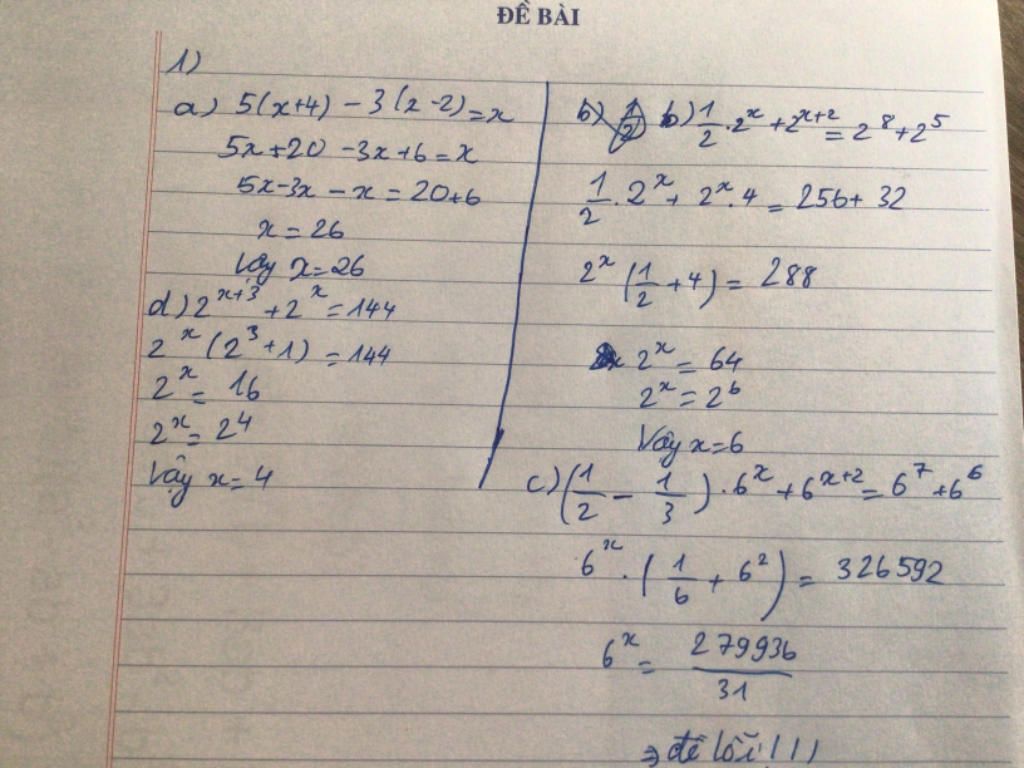 ĐỀ BÀI
1)
a) 5(x+4) - 3(x-2) = x
5x+20 -3x+6 = x
5x-3x - x = 20+6
x = 26
Vậy x=26
d) 2^{x+3} + 2^x = 144
2^x (2^3+1) = 144
2^x = 16
2^x = 2^4
Vậy x=4
b) 1/2 b) 1/2 . 2^x + 2^{x+2} = 2^8 + 2^5
1/2 . 2^x + 2^x . 4 = 256 + 32
2^x (1/2 + 4) = 288
2^x = 64
2^x = 2^6
Vậy x=6
c) (1/2 - 1/3) . 6^x + 6^{x+2} = 6^7 + 6^6
6^x . (1/6 + 6^2) = 326592
6^x = 279936/31
⇒ đề lỗi!!!